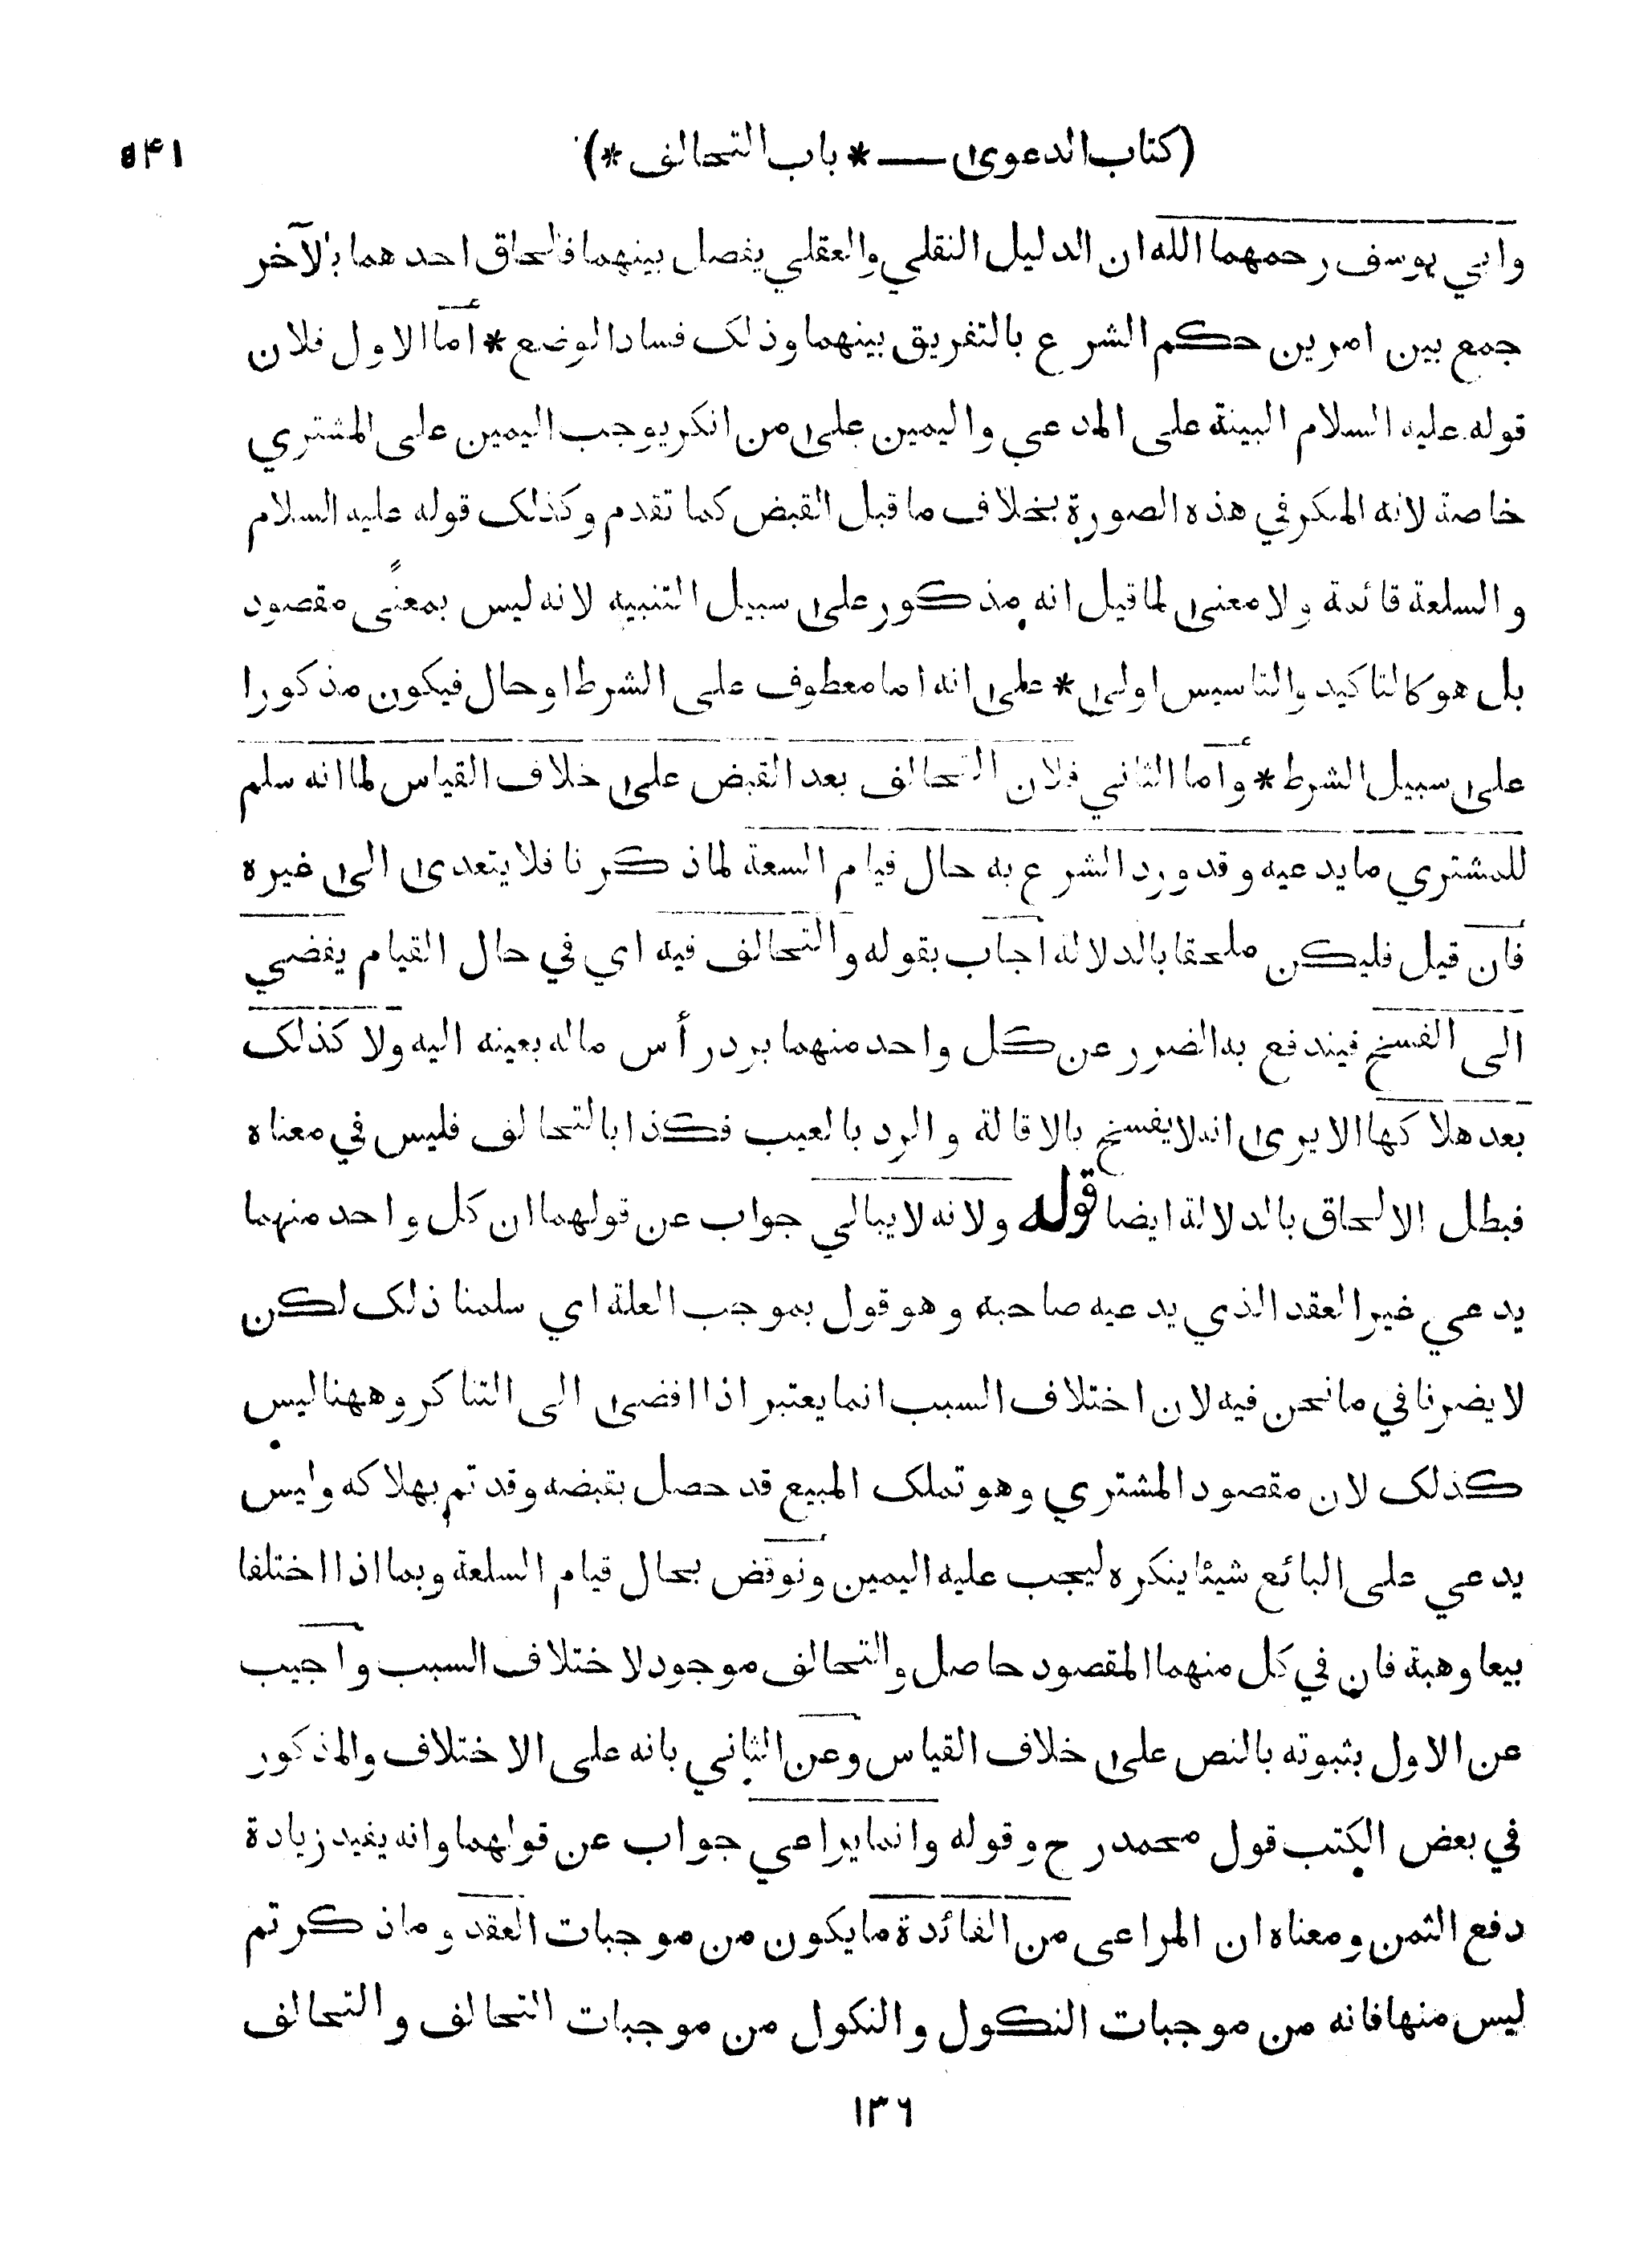 (كتاب الدعوى — * باب التحالف *)
٥۴١
وابي يوسف رحمهما الله ان الدليل النقلي والعقلي يفصل بينهما فالحاق احدهما بالآخر
جمع بين امرين حكم الشرع بالتفريق بينهما وذلك فساد الوضع * اما الاول فلان
قوله عليه السلام البينة على المدعي واليمين على من انكر يوجب اليمين على المشتري
خاصة لانه المنكر في هذه الصورة بخلاف ما قبل القبض كما تقدم وكذلك قوله عليه السلام
والسلعة قائمة ولا معنى لما قيل انه مذكور على سبيل التنبيه لانه ليس بمعنًى مقصود
بل هو كالتاكيد والتاسيس اولى * على انه اما معطوف على الشرط او حال فيكون مذكورا
على سبيل الشرط * واما الثاني فلان التحالف بعد القبض على خلاف القياس لما انه سلم
للمشتري ما يدعيه وقد ورد الشرع به حال قيام السعة لما ذكرنا فلا يتعدى الى غيره
فان قيل فليكن ملحقا بالدلالة اجاب بقوله والتحالف فيه اي في حال القيام يفضي
الى الفسخ فيندفع به الضرر عن كل واحد منهما برد رأس ماله بعينه اليه ولا كذلك
بعد هلاكها الا يرى انه لا يفسخ بالاقالة والرد بالعيب فكذا بالتحالف فليس في معناه
فبطل الالحاق بالدلالة ايضا قوله ولانه لا يبالي جواب عن قولهما ان كل واحد منهما
يدعي غير العقد الذي يدعيه صاحبه وهو قول بموجب العلة اي سلمنا ذلك لكن
لا يضرنا في ما نحن فيه لان اختلاف السبب انما يعتبر اذا افضى الى التناكر وههنا ليس
كذلك لان مقصود المشتري وهو تملك المبيع قد حصل بقبضه وقد تم بهلاكه وليس
يدعي على البائع شيئا ينكره ليجب عليه اليمين ونوقض بحال قيام السلعة وبما اذا اختلفا
بيعا وهبة فان في كل منهما المقصود حاصل والتحالف موجود لاختلاف السبب واجيب
عن الاول بثبوته بالنص على خلاف القياس وعن الثاني بانه على الاختلاف والمذكور
في بعض الكتب قول محمد رح وقوله وانما يراعي جواب عن قولهما وانه يفيد زيادة
دفع الثمن ومعناه ان المراعى من الفائدة ما يكون من موجبات العقد وما ذكرتم
ليس منها فانه من موجبات النكول والنكول من موجبات التحالف والتحالف
١٣٦